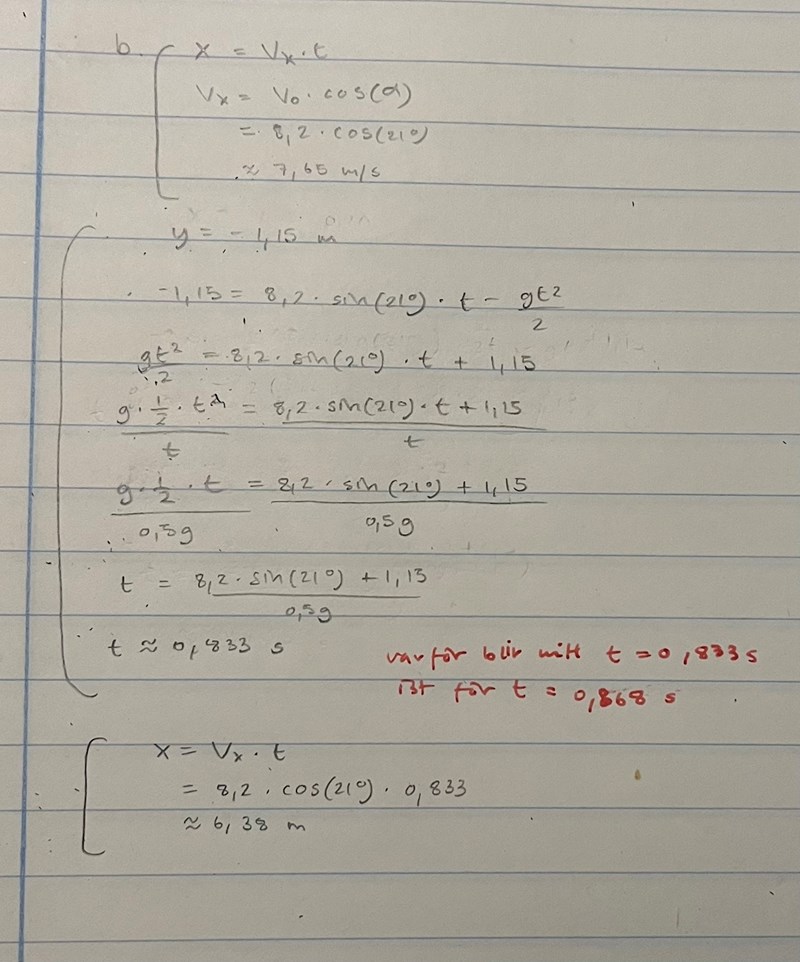 b. x = Vx · t
Vx = V0 · cos(α)
= 8,2 · cos(21°)
≈ 7,65 m/s
y = -1,15 m
-1,15 = 8,2 · sin(21°) · t - gt²/2
gt²/2 = 8,2 · sin(21°) · t + 1,15
g · 1/2 · t²/t = 8,2 · sin(21°) · t + 1,15/t
g · 1/2 · t/0,5g = 8,2 · sin(21°) + 1,15/0,5g
t = 8,2 · sin(21°) + 1,15/0,5g
t ≈ 0,833 s
varför blir mitt t = 0,833 s
ist för t = 0,868 s
x = Vx · t
= 8,2 · cos(21°) · 0,833
≈ 6,38 m